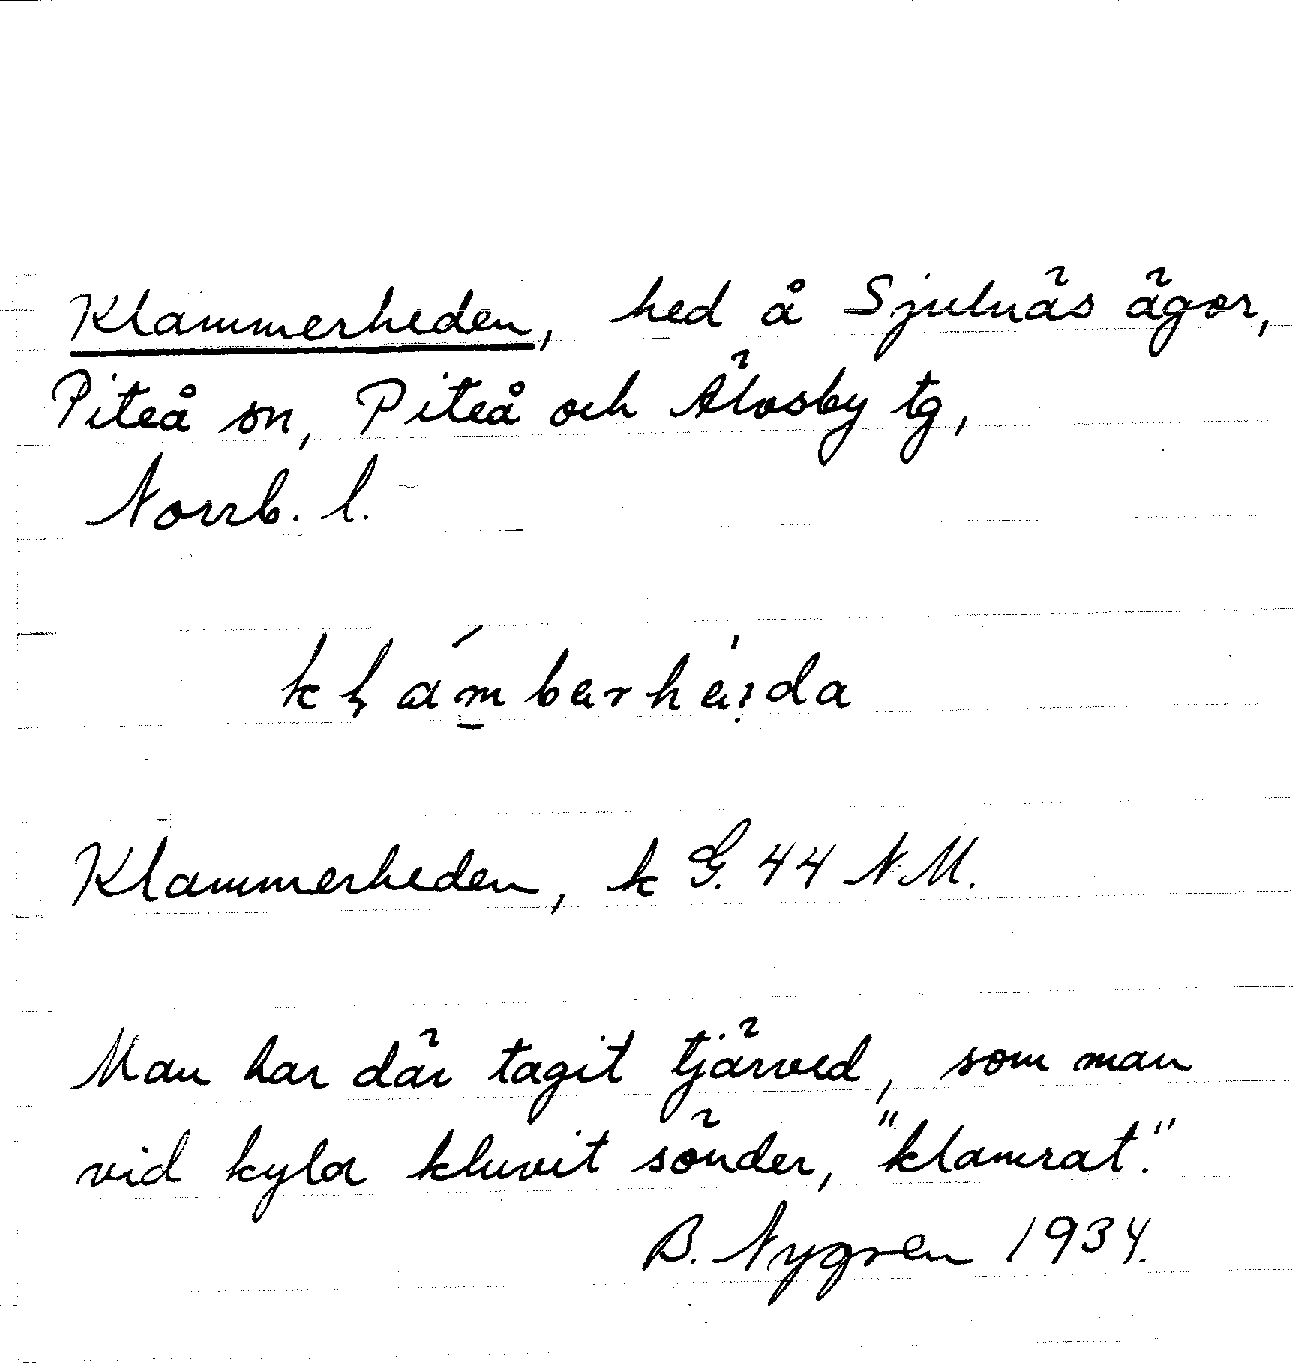 Klammerheden, hed å Sjulnäs ägor,
Piteå sn, Piteå och Älvsby tg,
Norrb. l.
Klammerheden, k G. 44 N.M.
Man har där tagit tjärved, som man
vid kyla kluvit sönder, "klamrat".
B. Nygren 1934.